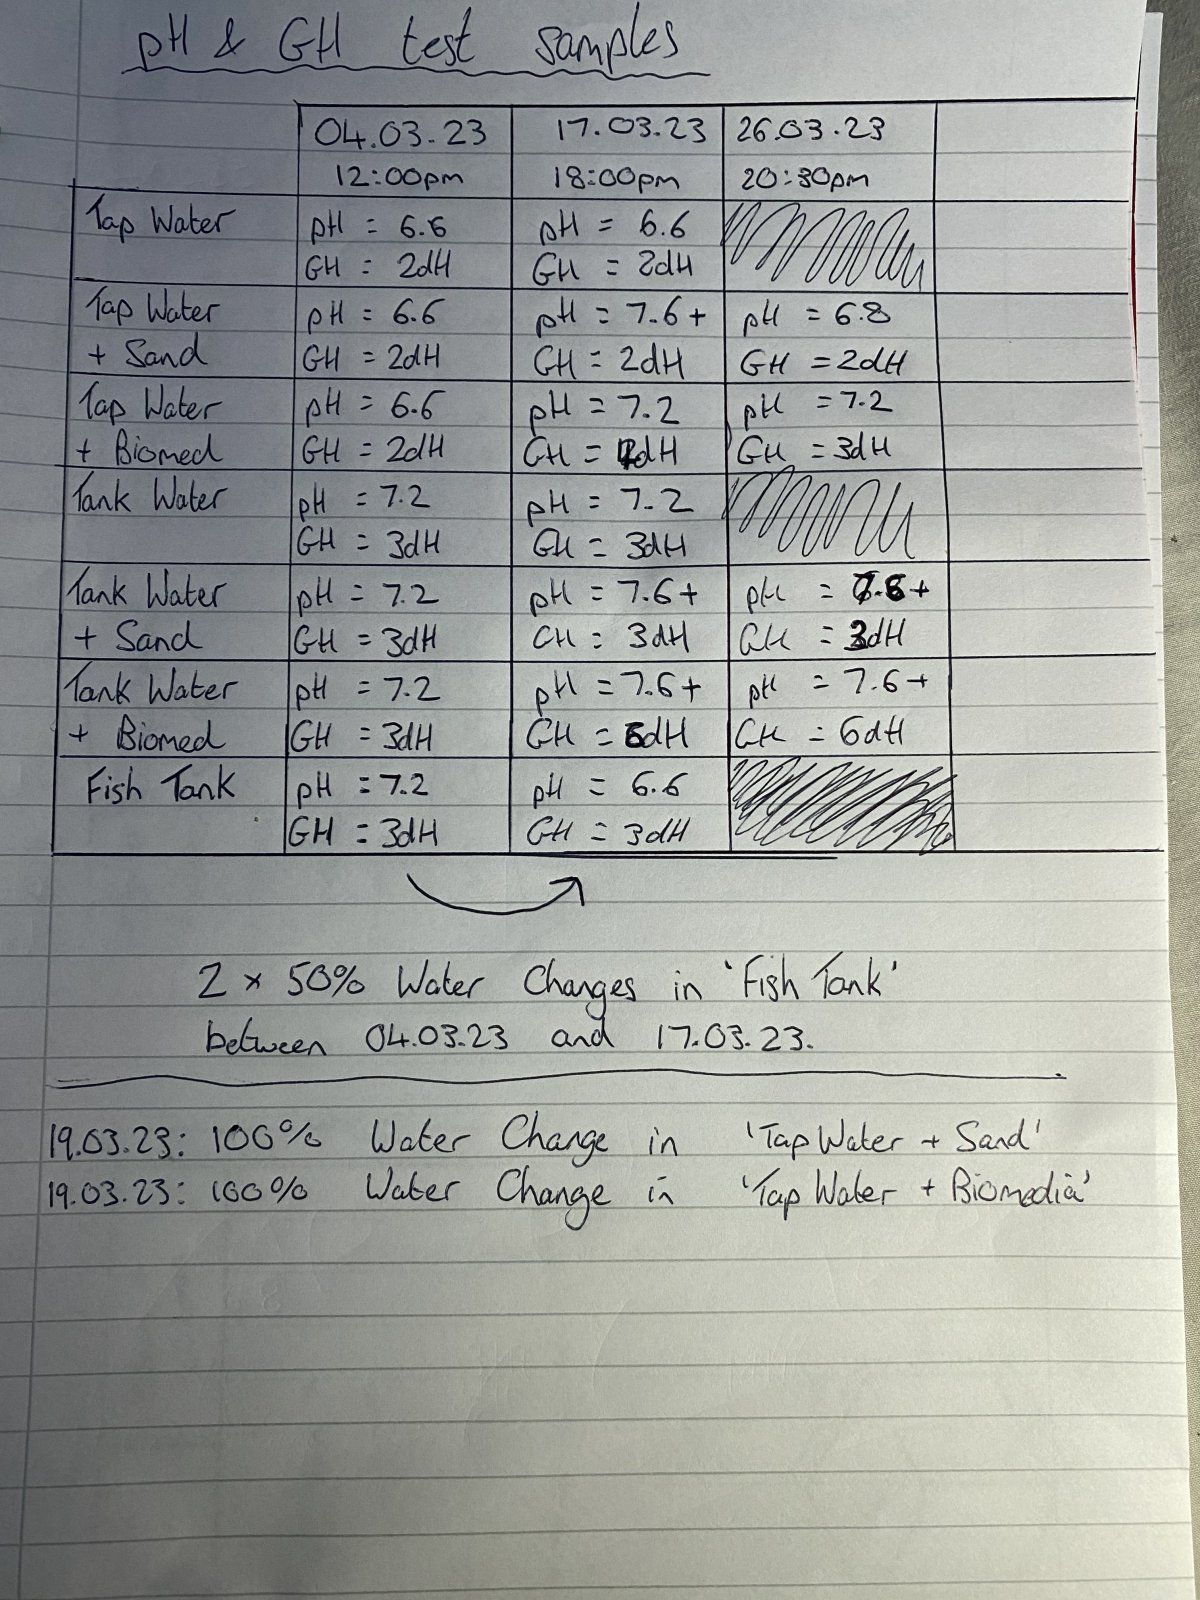 pH & GH test samples
04.03.23 17.03.23 26.03.23
12:00pm 18:00pm 20:30pm
Tap Water pH = 6.6 pH = 6.6
GH = 2dH GH = 2dH
Tap Water pH = 6.6 pH = 7.6+ pH = 6.8
+ Sand GH = 2dH GH = 2dH GH = 2dH
Tap Water pH = 6.6 pH = 7.2 pH = 7.2
+ Biomed GH = 2dH GH = dH GH = 3dH
Tank Water pH = 7.2 pH = 7.2
GH = 3dH GH = 3dH
Tank Water pH = 7.2 pH = 7.6+ pH =
+ Sand GH = 3dH GH = 3dH GH = 3dH
Tank Water pH = 7.2 pH = 7.6+ pH = 7.6+
+ Biomed GH = 3dH GH = 6dH GH = 6dH
Fish Tank pH = 7.2 pH = 6.6
GH = 3dH GH = 3dH
2 x 50% Water Changes in 'Fish Tank'
between 04.03.23 and 17.03.23.
19.03.23: 100% Water Change in 'Tap Water + Sand'
19.03.23: 100% Water Change in 'Tap Water + Biomedia'